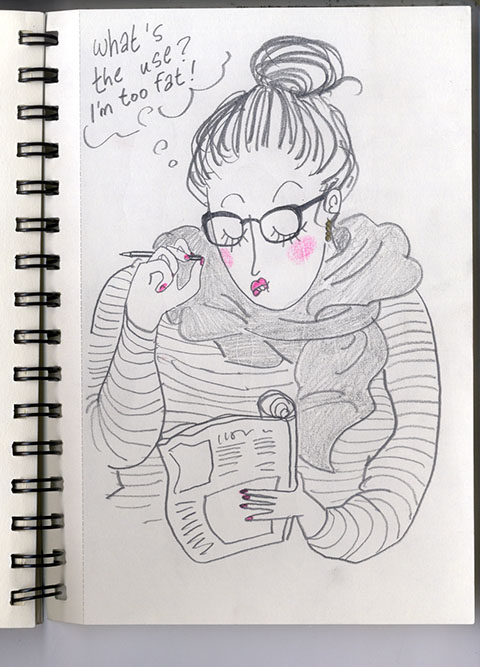 What's
the use?
I'm too fat!